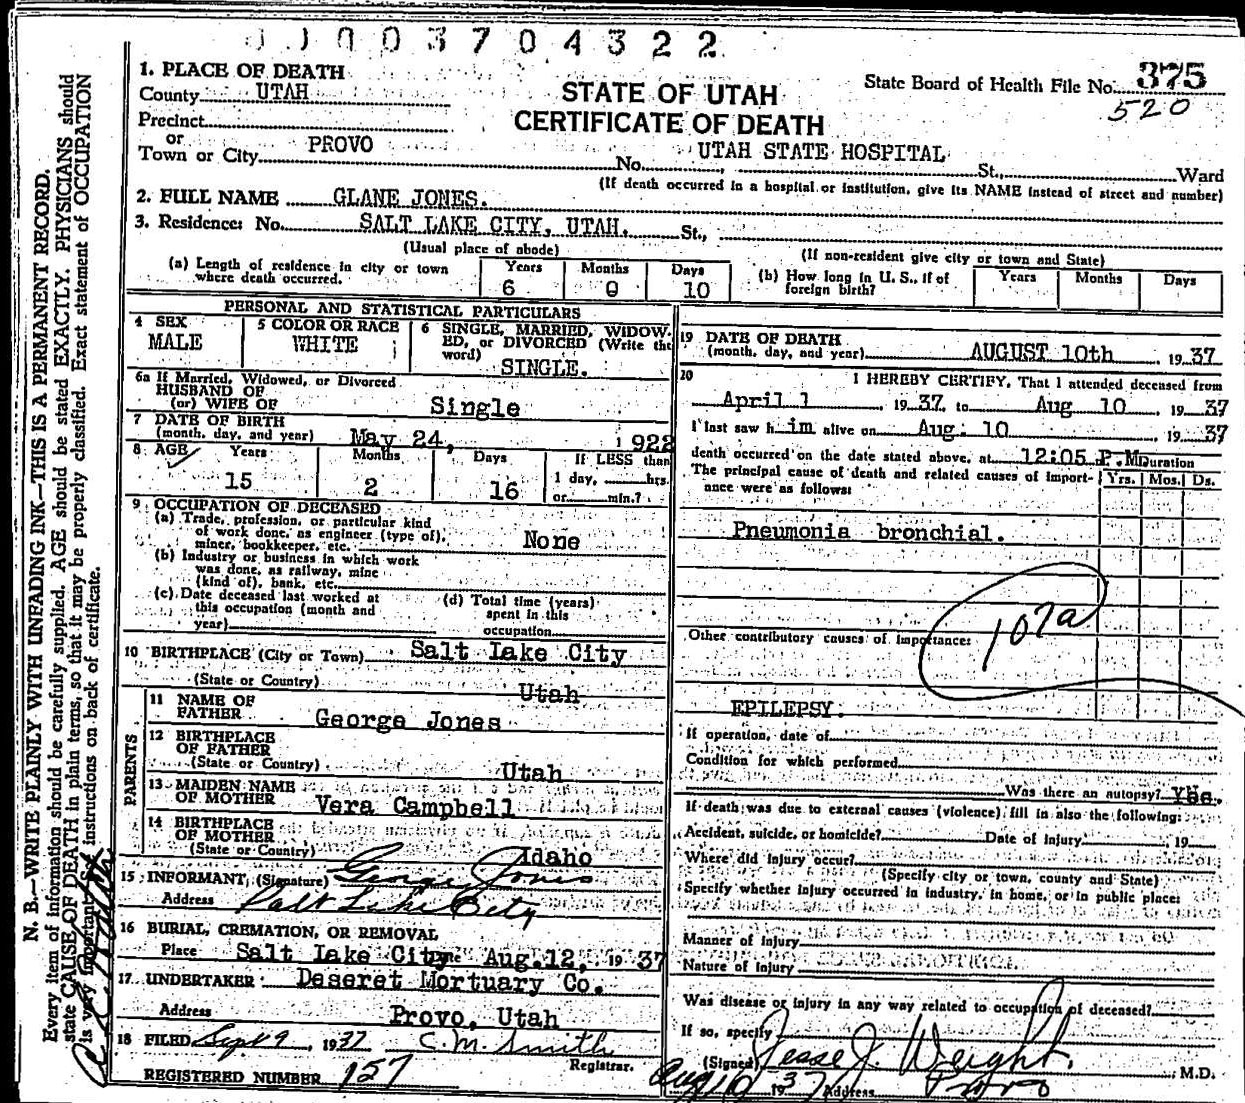 0003704322
1. PLACE OF DEATH
County UTAH
Precinct
or
Town or City PROVO
STATE OF UTAH
CERTIFICATE OF DEATH
State Board of Health File No. 375
520
No. UTAH STATE HOSPITAL St., Ward
(If death occurred in a hospital or institution, give its NAME instead of street and number)
2. FULL NAME GLANE JONES.
3. Residence: No. SALT LAKE CITY, UTAH. St.,
(Usual place of abode)
(If non-resident give city or town and State)
(a) Length of residence in city or town where death occurred. Years 6 Months 0 Days 10
(b) How long in U. S., if of foreign birth? Years Months Days
PERSONAL AND STATISTICAL PARTICULARS
4 SEX MALE
5 COLOR OR RACE WHITE
6 SINGLE, MARRIED, WIDOWED, or DIVORCED (Write the word) SINGLE.
6a If Married, Widowed, or Divorced
HUSBAND OF
(or) WIFE OF Single
7 DATE OF BIRTH
(month, day, and year) May 24, 1922
8 AGE Years 15 Months 2 Days 16 If LESS than 1 day, hrs. or min.?
9 OCCUPATION OF DECEASED
(a) Trade, profession, or particular kind
of work done, as engineer (type of),
miner, bookkeeper, etc. None
(b) Industry or business in which work
was done, as railway, mine
(kind of), bank, etc.
(c) Date deceased last worked at
this occupation (month and
year)
(d) Total time (years)
spent in this
occupation
10 BIRTHPLACE (City or Town) Salt Lake City
(State or Country) Utah
PARENTS
11 NAME OF
FATHER George Jones
12 BIRTHPLACE
OF FATHER
(State or Country) Utah
13 MAIDEN NAME
OF MOTHER Vera Campbell
14 BIRTHPLACE
OF MOTHER
(State or Country) Idaho
15 INFORMANT, (Signature) George Jones
Address Salt Lake City
16 BURIAL, CREMATION, OR REMOVAL
Place Salt Lake City Aug. 12, 1937
17 UNDERTAKER Deseret Mortuary Co.
Address Provo, Utah
18 FILED Sept 9, 1937 C.M. Smith
Registrar.
REGISTERED NUMBER 157
19 DATE OF DEATH
(month, day, and year) AUGUST 10th 1937
20 I HEREBY CERTIFY, That I attended deceased from
April 1, 1937, to Aug 10, 1937
I last saw him alive on Aug. 10, 1937
death occurred on the date stated above, at 12:05 P.M.
Duration
The principal cause of death and related causes of importance were as follows: Yrs. Mos. Ds.
Pneumonia bronchial.
107a
Other contributory causes of importance:
EPILEPSY.
If operation, date of
Condition for which performed
Was there an autopsy? Yes.
If death was due to external causes (violence) fill in also the following:
Accident, suicide, or homicide? Date of injury 19
Where did injury occur?
(Specify city or town, county and State)
Specify whether injury occurred in industry, in home, or in public place:
Manner of injury
Nature of injury
Was disease or injury in any way related to occupation of deceased?
If so, specify
(Signed) Jesse J. Weight, M.D.
Aug 10 1937 Address Provo
N. B.—WRITE PLAINLY WITH UNFADING INK—THIS IS A PERMANENT RECORD.
Every item of information should be carefully supplied. AGE should be stated EXACTLY. PHYSICIANS should
state CAUSE OF DEATH in plain terms, so that it may be properly classified. Exact statement of OCCUPATION
is very important. See instructions on back of certificate.